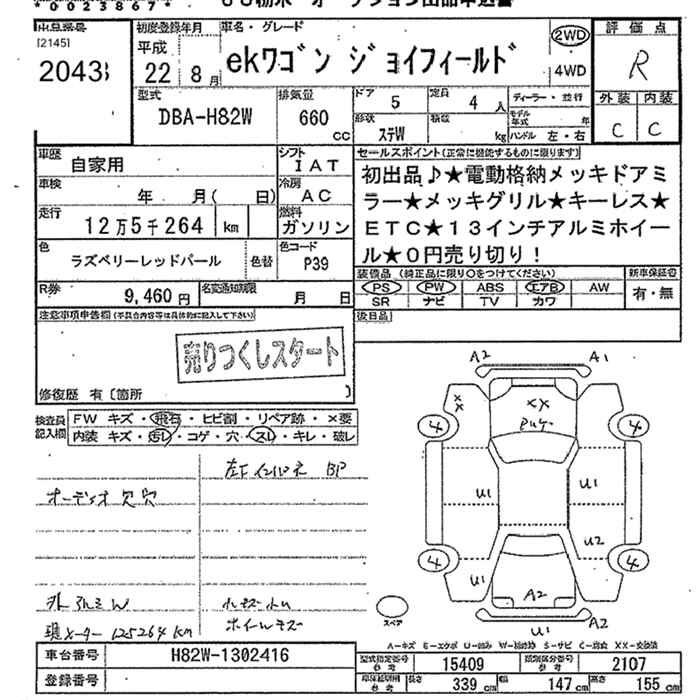 *00238674
出品番号 初度登録年月 車名・グレード 2WD 評価点
[2145]
2043 平成 22 8月 ekワゴン ジョイフィールド 4WD R
型式 DBA-H82W 排気量 660 cc ドア 5 定員 4 人 ディーラー・並行 外装 内装
形状 ステW 積載 kg モデル年式 年 ハンドル 左・右 C C
車歴 自家用 シフト IAT セールスポイント(正常に機能するものに限ります)
車検 年 月( 日) 冷房 AC 初出品♪★電動格納メッキドアミ
ラー★メッキグリル★キーレス★
走行 12万5千264 km 燃料 ガソリン ETC★13インチアルミホイー
ル★0円売り切り!
色 ラズベリーレッドパール 色替 色コード P39
装備品 (純正品に限り○をつけてください) 新車保証書
R券 9,460円 名変通知期限 月 日 PS PW ABS エアB AW 有・無
SR ナビ TV カワ
注意事項申告欄(不具合内容等は具体的に記入して下さい) 後日品
売りつくしスタート
修復歴 有〔箇所 〕
検査員記入欄 FW キズ・飛石・ヒビ割・リペア跡・×要
内装 キズ・汚レ・コゲ・穴・スレ・キレ・破レ
A2 A1
XX XX
4 4
左F インパネ BP
オーディオ欠穴
U1 U1
U2
4 4
U1 A2
外アルミW
ホイールキズ
スペア
U1 A2
メーター 125264km
A-キズ E-エクボ U-凹み W-補修跡 S-サビ C-腐食 XX-交換済
車台番号 H82W-1302416 型式指定番号 参考 15409 類別区分番号 参考 2107
登録番号 長さ 339 cm 幅 147 cm 高さ 155 cm